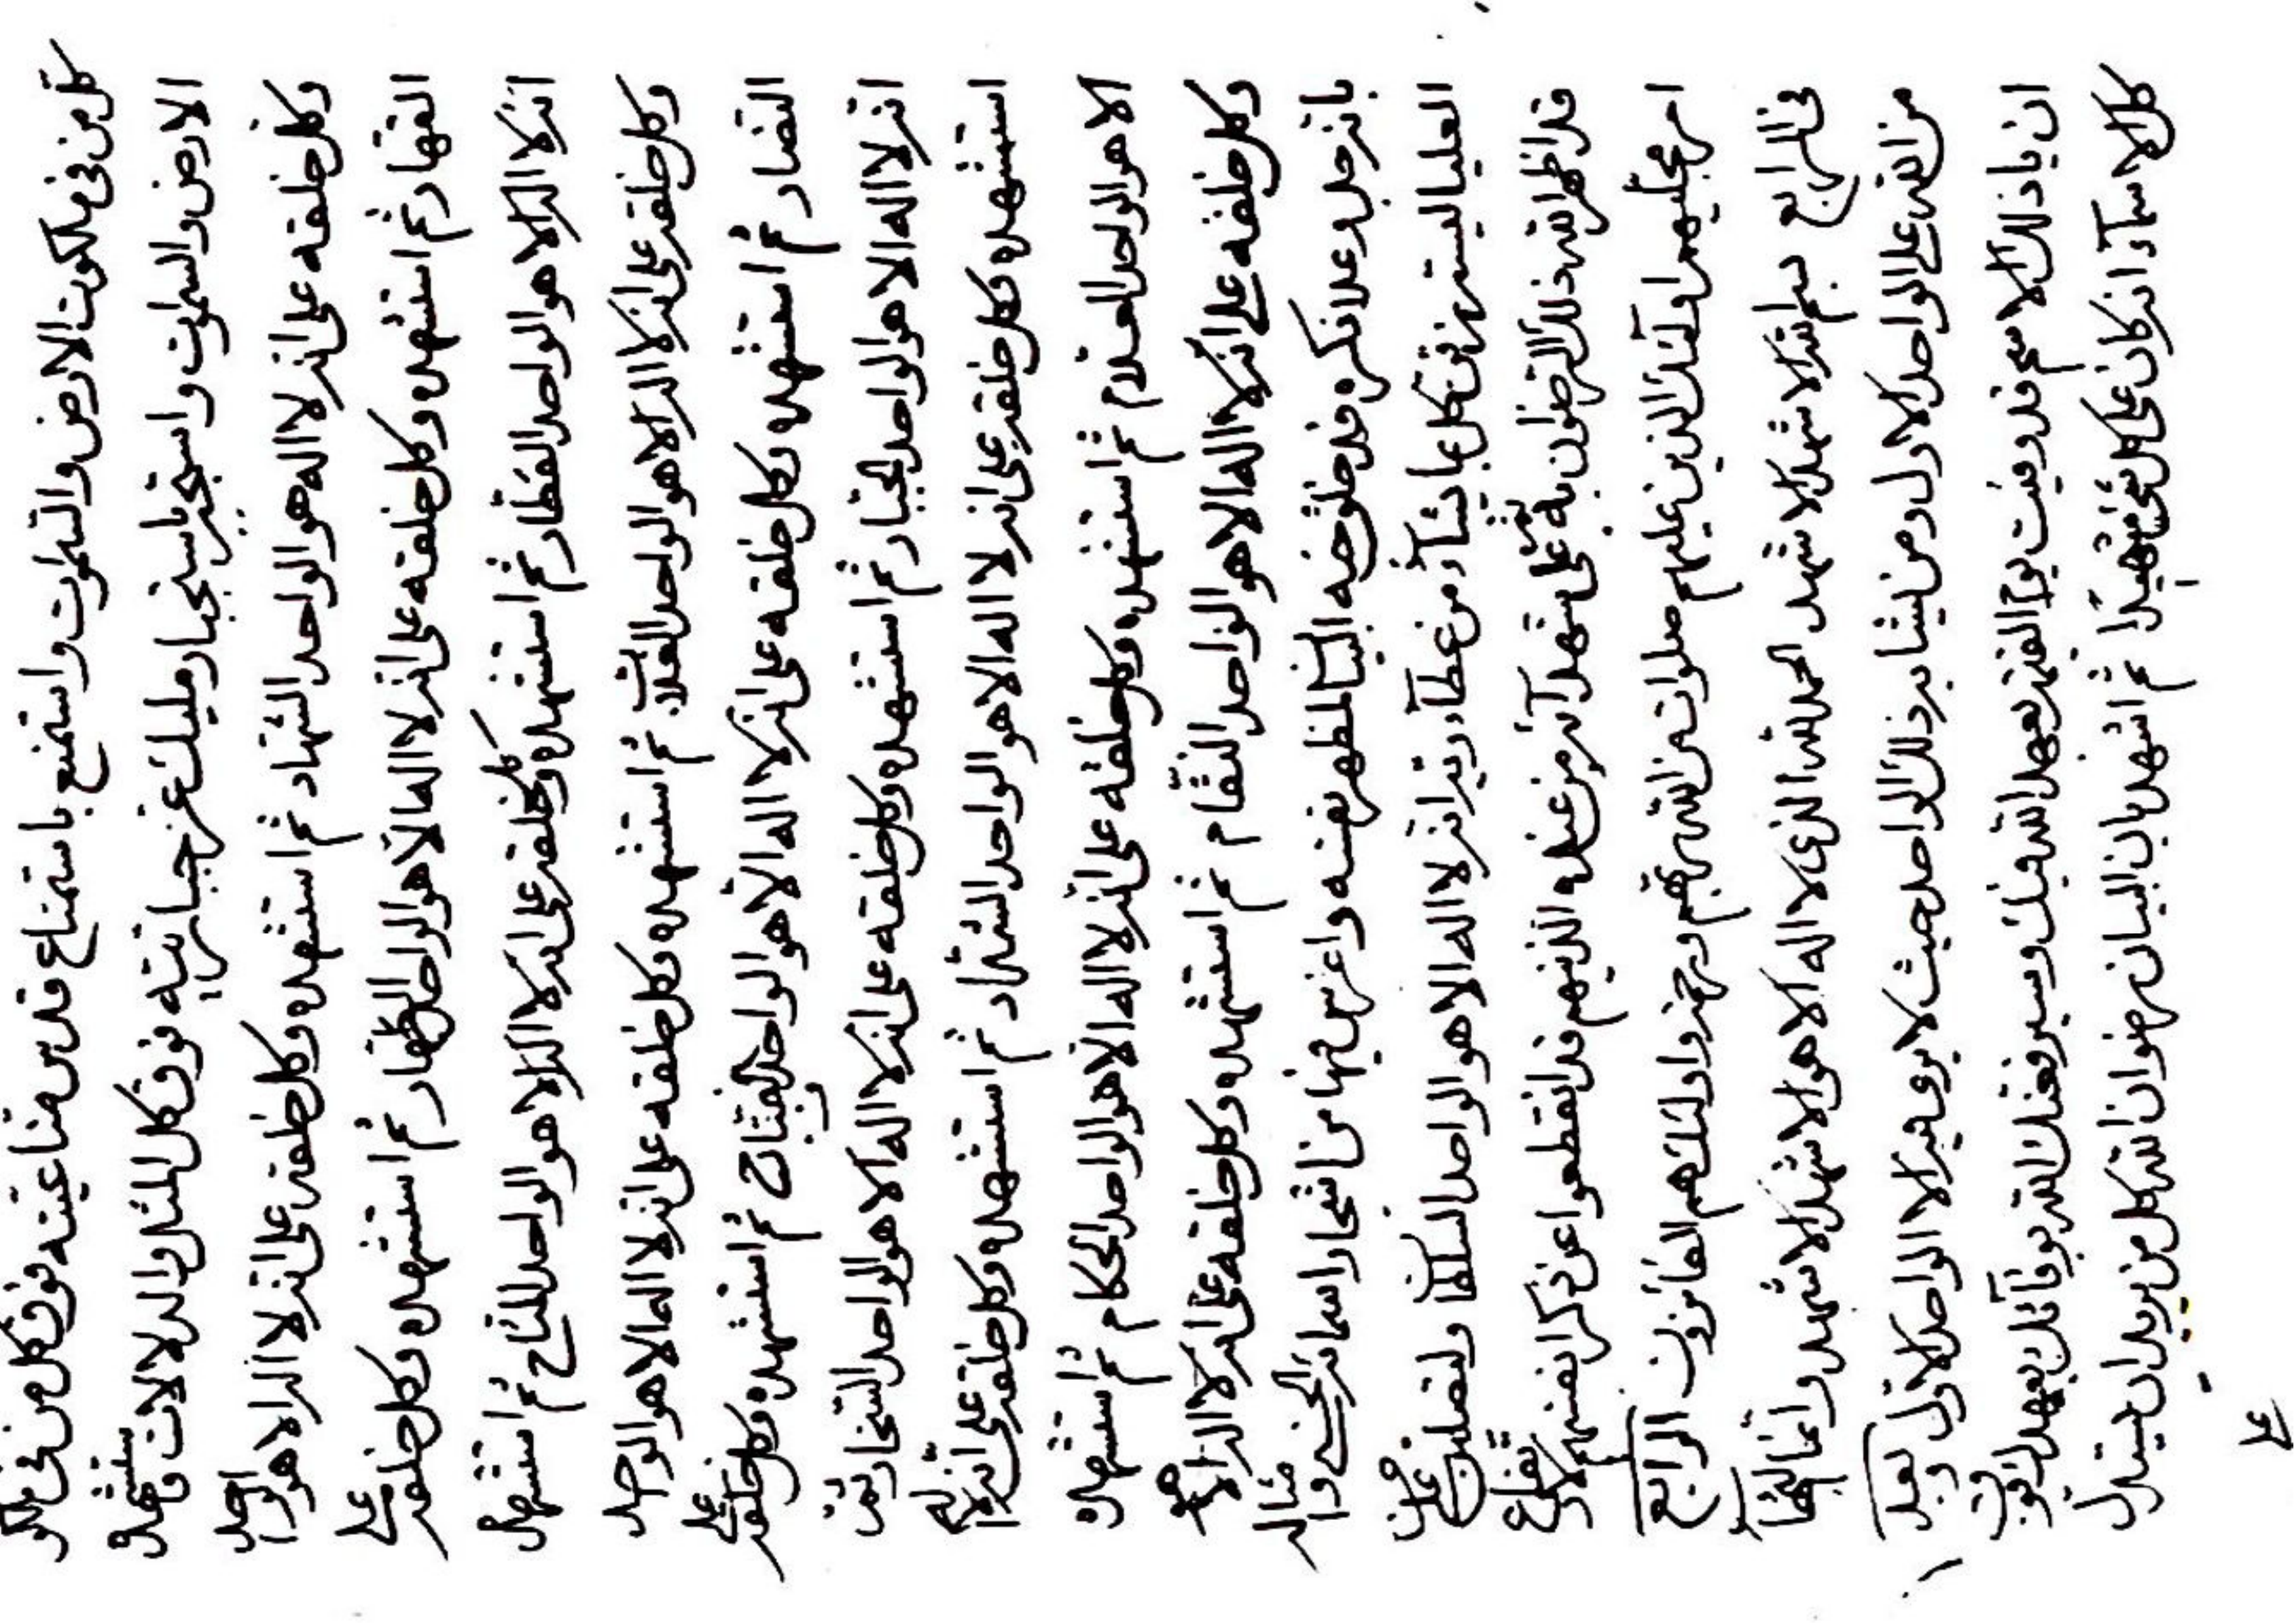 كل من في ملكوت الارض والسموات واستمنع باستمناع قدس مناعيته فوق كل من في ملكو
الارض والسموات واستجبر باستجبار مليك عز جباريته فوق كل المثل والدلالات فاستشهده
وكل خلقه على انه لا اله هو الواحد الشهاد ثم استشهده وكل خلقه على انه لا اله الا هو الواحد
القهار ثم استشهده وكل خلقه على انه لا اله الا هو الواحد الظهار ثم استشهده وكل خلقه على
انه لا اله الا هو الواحد الفطار ثم استشهده وكل خلقه على انه لا اله الا هو الواحد المناح ثم استشهده
وكل خلقه على انه لا اله الا هو الواحد الغلاب ثم استشهده وكل خلقه على انه لا اله الا هو الواحد
النصار ثم استشهده وكل خلقه على انه لا اله الا هو الواحد الفتاح ثم استشهده وكل خلقه على
انه لا اله الا هو الواحد الجبار ثم استشهده وكل خلقه على انه لا اله الا هو الواحد السخار ثم
استشهده وكل خلقه على انه لا اله الا هو الواحد الشداد ثم استشهده وكل خلقه على انه لا اله
الا هو الواحد العلام ثم استشهده وكل خلقه على انه لا اله الا هو الواحد الحكام ثم استشهده
وكل خلقه على انه لا اله الا هو الواحد النقام ثم استشهده وكل خلقه على انه لا اله الا هو
بانه جل وعلا ذكره قد خلق جنه البيان لمظهر نفسه واغرس فيها من اشجار اسمائه الحسنى وامثاله
العليا ليسترزقن كل بما يشاء من عطاء ربه انه لا اله الا هو الواحد السلط
قد اظهر الله ذلك الرضوان به على شهداء من عنده الذينهم قد انقطعوا عن ذكر انفسهم لارتفاع
امر مجليهم اولئك الذين عليهم صلوات من الله ربهم ورحمة واولئك هم الفائزون الرابع
في الرابع بسم الله الاشهد الاشهد الحمد لله الذي لا اله الا هو الاشهد الاشهد وانما البهاء
من الله على الواحد الاول ومن يشابه ذلك الواحد حيث لا يرى فيه الا الواحد الاول وبعد
ان باذلك الاسم قد وفيت يوم القيمة بعهد الله فيك وسيوفينك الله بوفائك بعهد
كل الاسماء انه كان على كل شئ شهيدا ثم اشهد بان البيان رضوان الله كل من يريد ان يستدل
على